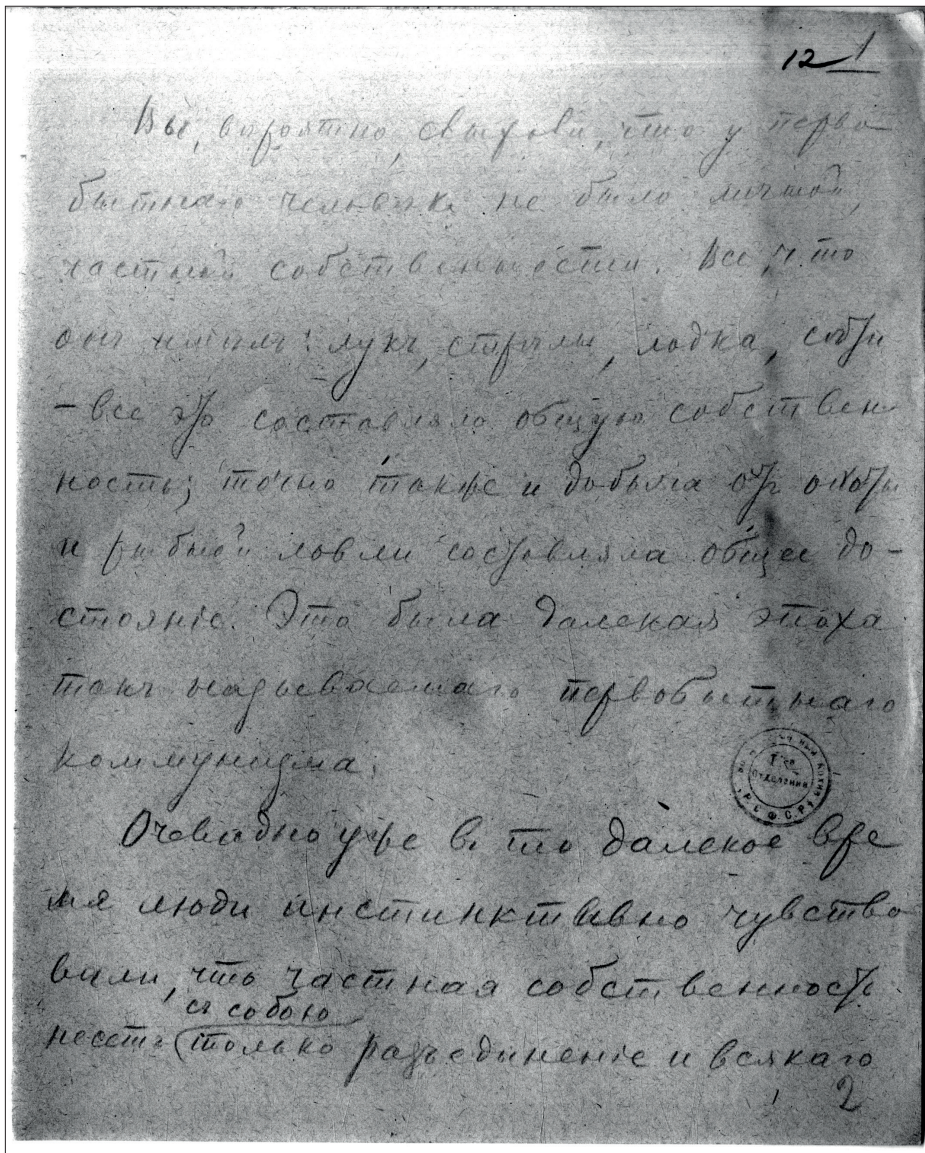 12 1
Вы, вѣроятно, слыхали, что у перво
бытнаго человѣка не было личной,
частной собственности. Все, что
онъ имѣлъ: лукъ, стрѣлы, лодка, сѣти
– все это составляло общую собствен
ность; точно также и добыча отъ охоты
и рыбной ловли составляла общее до-
стояніе. Это была далекая эпоха
такъ называемаго первобытнаго
коммунизма.
Отделения
Р.С.Ф.С.Р.
Очевидно уже въ то далекое вре
мя люди инстинктивно чувство
вали, что частная собственность
съ собою
несетъ только разъединеніе и всякаго
2